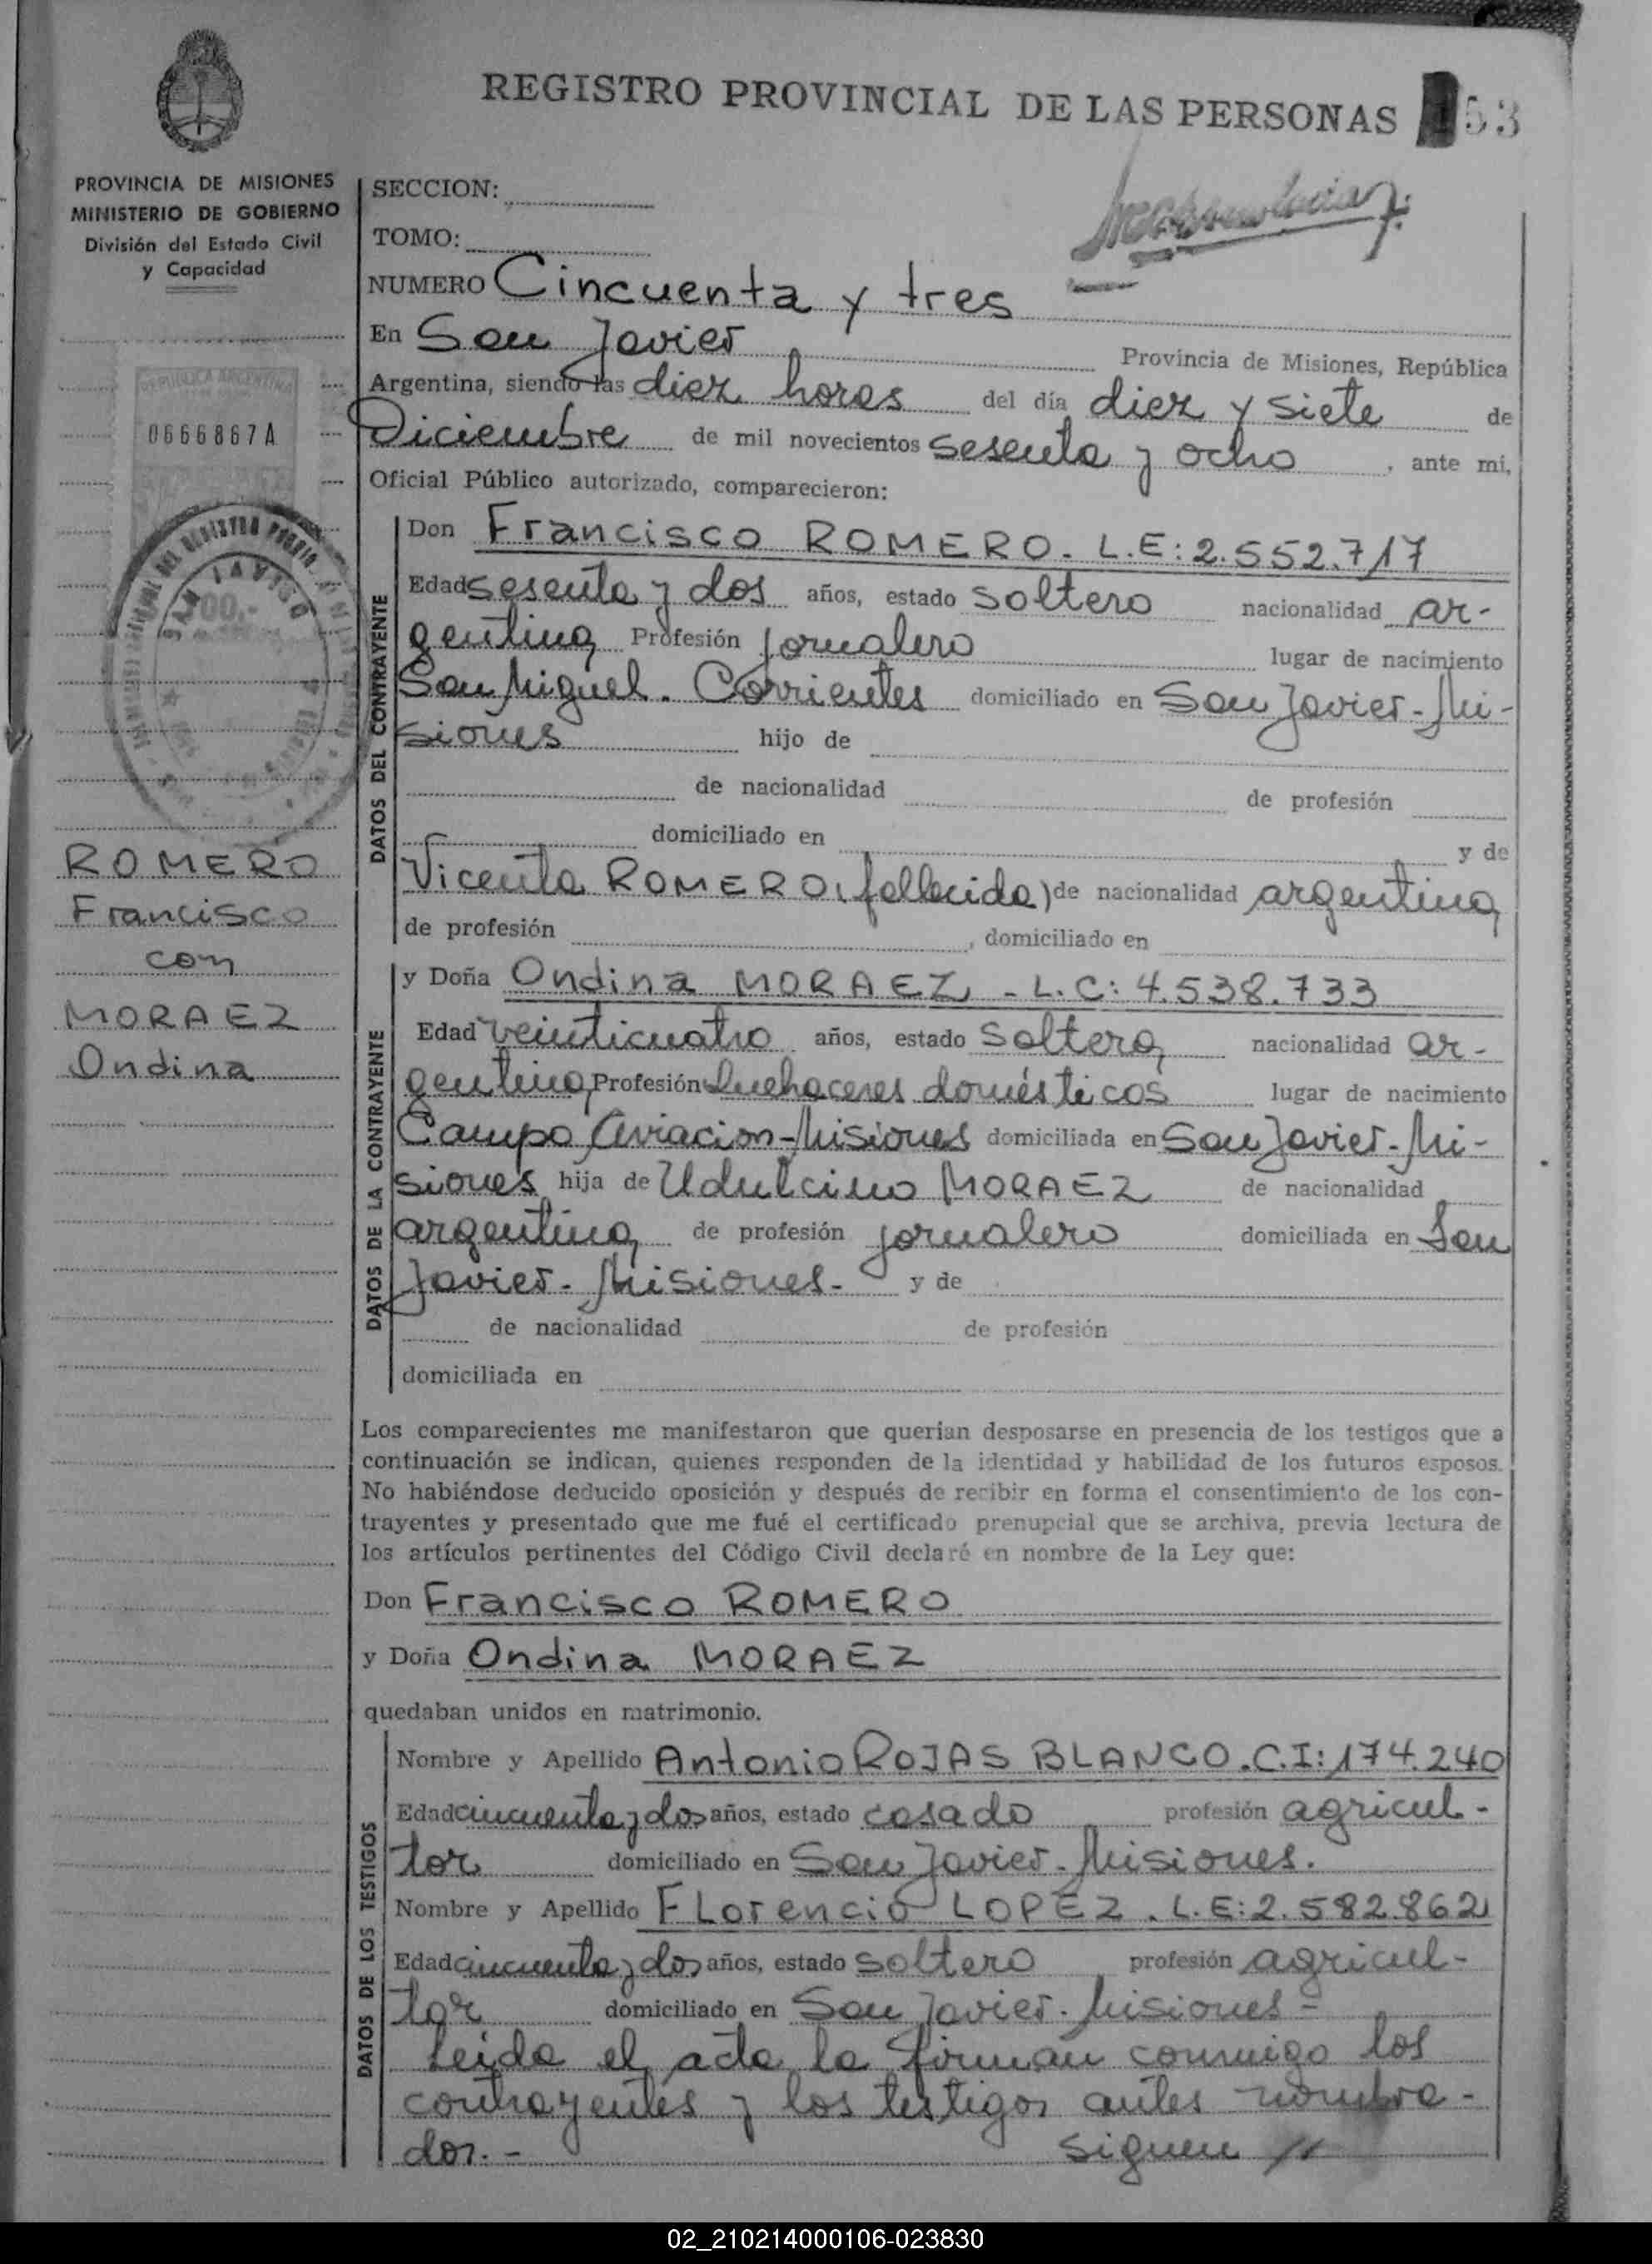 REGISTRO PROVINCIAL DE LAS PERSONAS 53
PROVINCIA DE MISIONES
MINISTERIO DE GOBIERNO
División del Estado Civil
y Capacidad
SECCION:
TOMO:
NUMERO Cincuenta y tres
En San Javier Provincia de Misiones, República
Argentina, siendo las diez horas del día diez y siete de
Diciembre de mil novecientos sesenta y ocho, ante mí,
Oficial Público autorizado, comparecieron:
REPUBLICA ARGENTINA
0666867A
SAN JAVIER
DATOS DEL CONTRAYENTE
Don Francisco ROMERO. L.E: 2.552.717
Edad sesenta y dos años, estado soltero nacionalidad ar-
gentina Profesión jornalero lugar de nacimiento
San Miguel. Corrientes domiciliado en San Javier-Mi-
siones hijo de
de nacionalidad de profesión
domiciliado en y de
Vicenta ROMERO (fallecida) de nacionalidad argentina
de profesión , domiciliado en
ROMERO
Francisco
con
MORAEZ
Ondina
DATOS DE LA CONTRAYENTE
y Doña Ondina MORAEZ - L.C: 4.538.733
Edad veinticuatro años, estado soltera nacionalidad ar-
gentina Profesión Quehaceres domésticos lugar de nacimiento
Campo Aviacion-Misiones domiciliada en San Javier-Mi-
siones hija de Udulcino MORAEZ de nacionalidad
argentina de profesión jornalero domiciliada en San
Javier-Misiones.- y de
de nacionalidad de profesión
domiciliada en
Los comparecientes me manifestaron que querían desposarse en presencia de los testigos que a
continuación se indican, quienes responden de la identidad y habilidad de los futuros esposos.
No habiéndose deducido oposición y después de recibir en forma el consentimiento de los con-
trayentes y presentado que me fué el certificado prenupcial que se archiva, previa lectura de
los artículos pertinentes del Código Civil declaré en nombre de la Ley que:
Don Francisco ROMERO
y Doña Ondina MORAEZ
quedaban unidos en matrimonio.
DATOS DE LOS TESTIGOS
Nombre y Apellido Antonio ROJAS BLANCO. C.I: 174.240
Edad cincuenta y dos años, estado casado profesión agricul-
tor domiciliado en San Javier-Misiones.
Nombre y Apellido Florencio LOPEZ. L.E: 2.582.862
Edad cincuenta y dos años, estado soltero profesión agricul-
tor domiciliado en San Javier-Misiones-
Leida el acta la firman conmigo los
contrayentes y los testigos antes nombra-
dos.- Siguen //
02_210214000106-023830